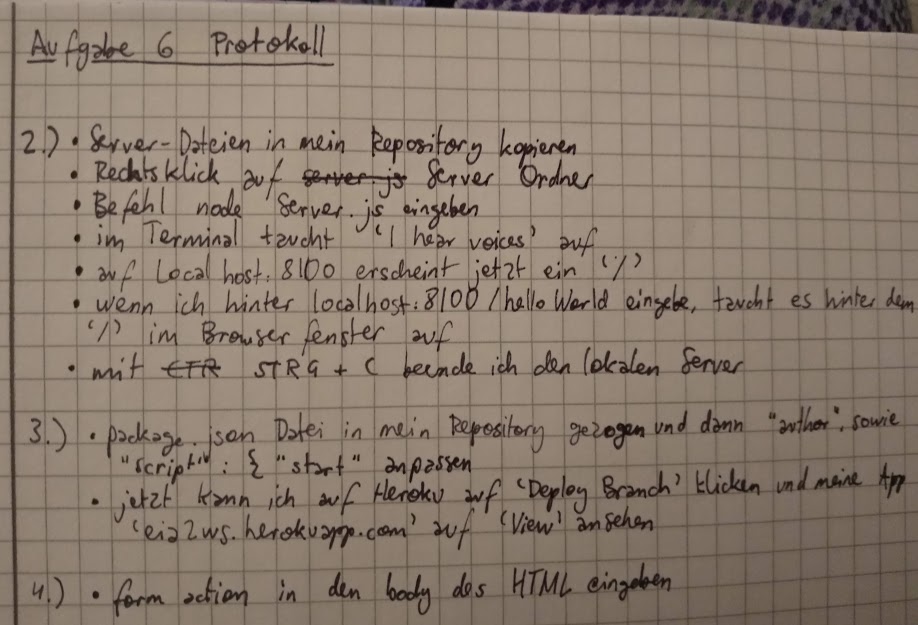 Aufgabe 6 Protokoll
2.) • Server-Dateien in mein Repository kopieren
• Rechtsklick auf server.js Server Ordner
• Befehl node Server.js eingeben
• im Terminal taucht 'I hear voices' auf
• auf Local host: 8100 erscheint jetzt ein '/'
• wenn ich hinter localhost:8100/hello World eingebe, taucht es hinter dem
'/' im Browser fenster auf
• mit CTR STRG + C beende ich den lokalen Server
3.) • package.json Datei in mein Repository gezogen und dann "author", sowie
"script": { "start" anpassen
• jetzt kann ich auf Heroku auf 'Deploy Branch' klicken und meine App
'eia2ws.herokuapp.com' auf 'View' ansehen
4.) • form action in den body des HTML eingeben